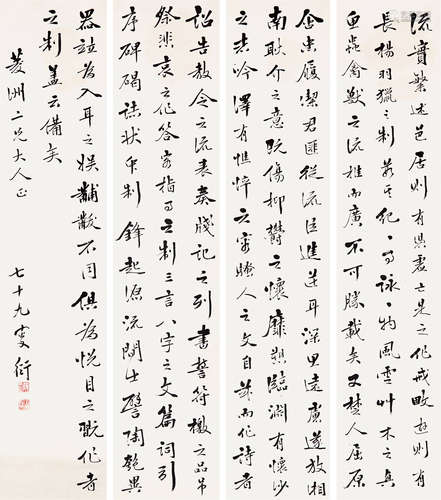 流實繁述邑居則有憑虛亡是之作戒畋遊則有
長楊羽獵之制若其紀一事詠一物風雲艸木之興
魚蟲禽獸之流推而廣不可勝載矣又楚人屈原
含忠履潔君匪從流臣進逆耳深思遠慮遂放湘
南耿介之意既傷抑鬱之懷靡愬臨淵有懷沙
之志吟澤有憔悴之容騷人之文自茲而作詩者
詔告教令之流表奏牋記之列書誓符檄之品弔
祭悲哀之作答客指事之制三言八字之文篇詞引
序碑碣誌狀眾制鋒起源流間出譬陶匏異
器竝為入耳之娛黼黻不同俱為悅目之翫作者
之制蓋云備矣
菱洲二兄大人正
七十九叟衍